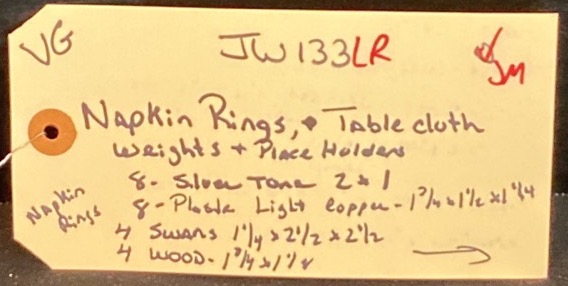 VG
JW133LR
JM
Napkin Rings, + Table cloth
Weights + Place Holders
Napkin Rings
8- Silver Tone 2 x 1
8- Plastic Light Copper - 1 3/4 x 1 1/2 x 1 1/4
4 Swans 1 1/4 x 2 1/2 x 2 1/2
4 Wood - 1 3/4 x 1 1/8